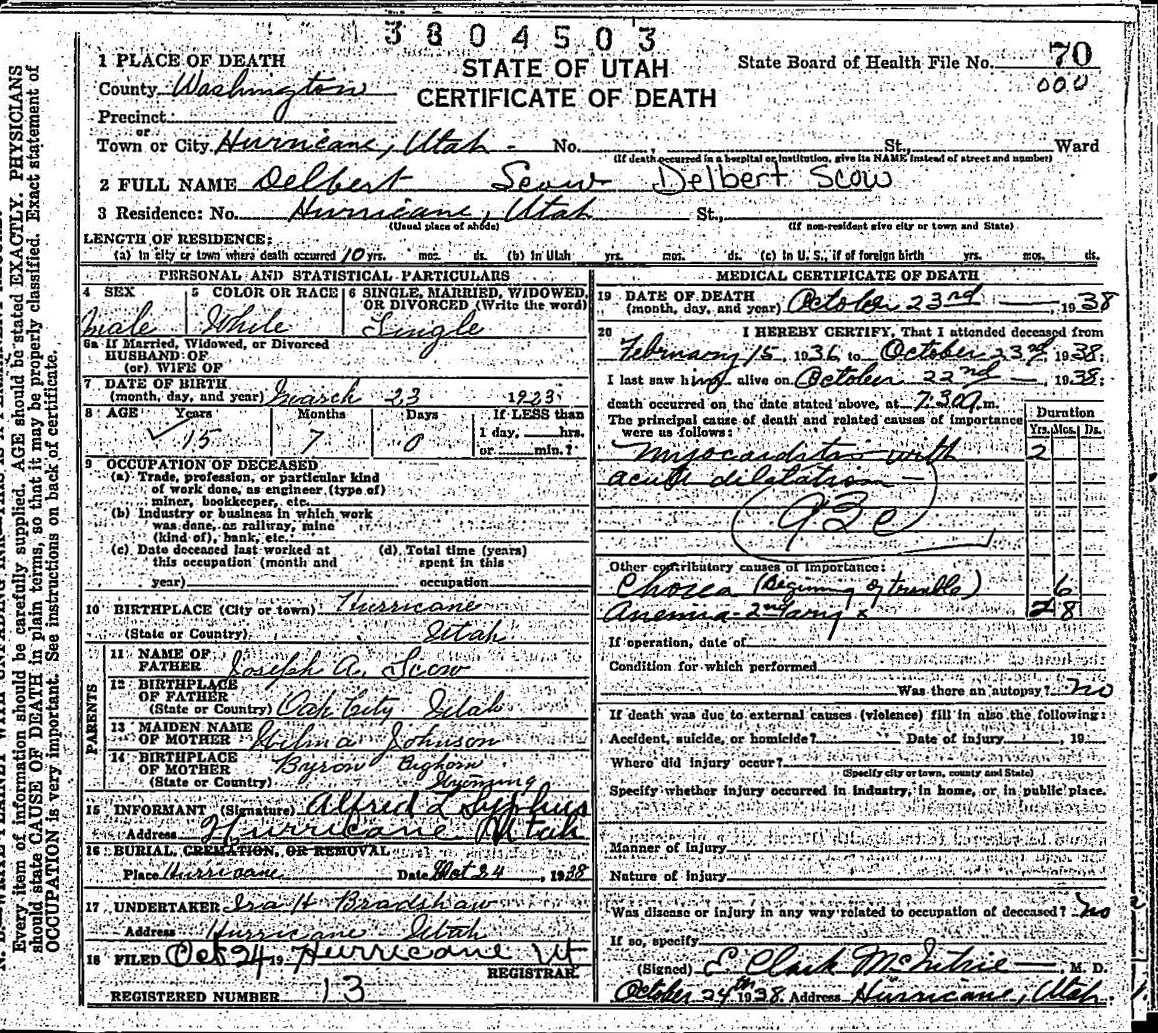 3804503
STATE OF UTAH
CERTIFICATE OF DEATH
State Board of Health File No. 70
000
1 PLACE OF DEATH
County Washington
Precinct
or
Town or City Hurricane, Utah - No. St., Ward
(If death occurred in a hospital or institution, give its NAME instead of street and number)
2 FULL NAME Delbert Scow Delbert Scow
3 Residence: No. Hurricane, Utah St.,
(Usual place of abode) (If non-resident give city or town and State)
LENGTH OF RESIDENCE:
(a) In city or town where death occurred 10 yrs. mos. ds. (b) In Utah yrs. mos. ds. (c) In U. S., if of foreign birth yrs. mos. ds.
PERSONAL AND STATISTICAL PARTICULARS
4 SEX 5 COLOR OR RACE 6 SINGLE, MARRIED, WIDOWED,
OR DIVORCED (Write the word)
Male White Single
6a If Married, Widowed, or Divorced
HUSBAND OF
(or) WIFE OF
7 DATE OF BIRTH
(month, day, and year) March 23 1923
8 AGE Years Months Days If LESS than
15 7 0 1 day, hrs.
or min.?
9 OCCUPATION OF DECEASED
(a) Trade, profession, or particular kind
of work done, as engineer (type of)
miner, bookkeeper, etc.
(b) Industry or business in which work
was done, as railway, mine
(kind of), bank, etc.
(c) Date deceased last worked at (d) Total time (years)
this occupation (month and spent in this
year) occupation
10 BIRTHPLACE (City or town) Hurricane
(State or Country) Utah
PARENTS
11 NAME OF
FATHER Joseph A. Scow
12 BIRTHPLACE
OF FATHER
(State or Country) Oak City Utah
13 MAIDEN NAME
OF MOTHER Wilma Johnson
14 BIRTHPLACE
OF MOTHER Byron Bighorn
(State or Country) Wyoming
15 INFORMANT (Signature) Alfred L Syphus
Address Hurricane Utah
16 BURIAL, CREMATION, OR REMOVAL
Place Hurricane Date Oct 24, 1938
17 UNDERTAKER Ira H Bradshaw
Address Hurricane Utah
18 FILED Oct 24 19 Hurricane Ut
REGISTRAR
REGISTERED NUMBER 13
MEDICAL CERTIFICATE OF DEATH
19 DATE OF DEATH
(month, day, and year) October 23rd, 1938
20 I HEREBY CERTIFY, That I attended deceased from
February 15, 1936 to October 23rd, 1938;
I last saw him alive on October 22nd, 1938;
death occurred on the date stated above, at 7:30 m.
The principal cause of death and related causes of importance
were as follows:
Duration
Yrs. Mos. Ds.
Myocarditis with 2
acute dilatation
93c
Other contributory causes of importance:
Chorea (Beginning of trouble) 6
Anemia - 2ndary 8
If operation, date of
Condition for which performed
Was there an autopsy? no
If death was due to external causes (violence) fill in also the following:
Accident, suicide, or homicide? Date of injury , 19
Where did injury occur?
(Specify city or town, county and State)
Specify whether injury occurred in industry, in home, or in public place.
Manner of injury
Nature of injury
Was disease or injury in any way related to occupation of deceased? no
If so, specify
(Signed) E. Clark McIntire, M. D.
October 24th 1938 Address Hurricane, Utah.
Every item of information should be carefully supplied. AGE should be stated EXACTLY. PHYSICIANS
should state CAUSE OF DEATH in plain terms, so that it may be properly classified. Exact statement of
OCCUPATION is very important. See instructions on back of certificate.